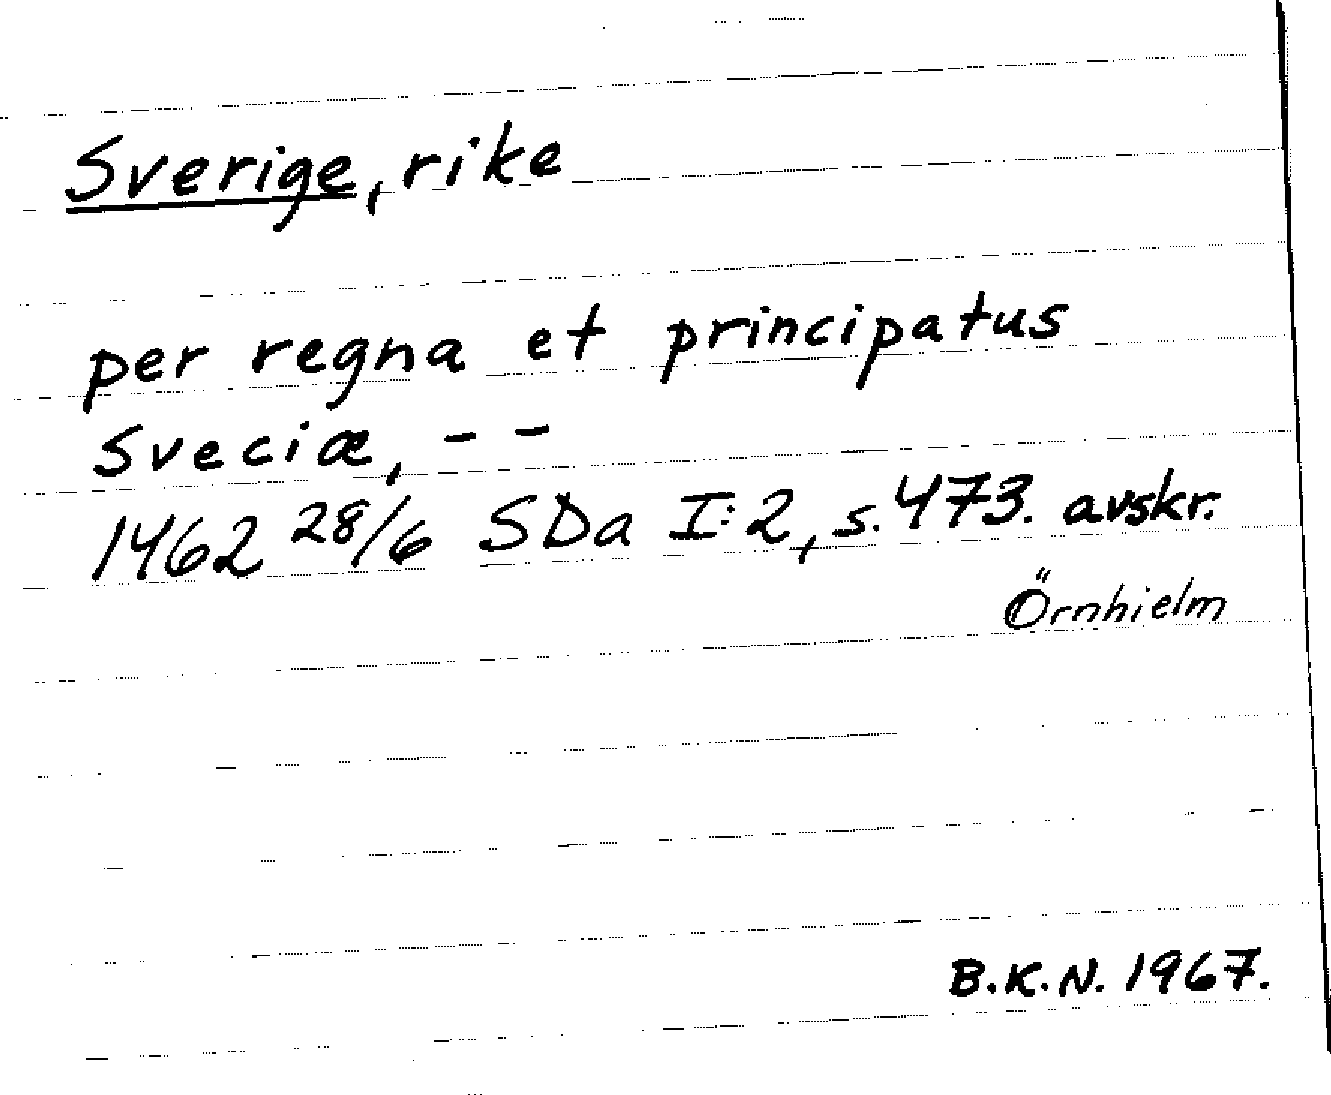 Sverige, rike
per regna et principatus
Sveciæ, - -
1462 28/6 SDa I:2, s. 473. avskr.
Örnhielm
B.K.N. 1967.